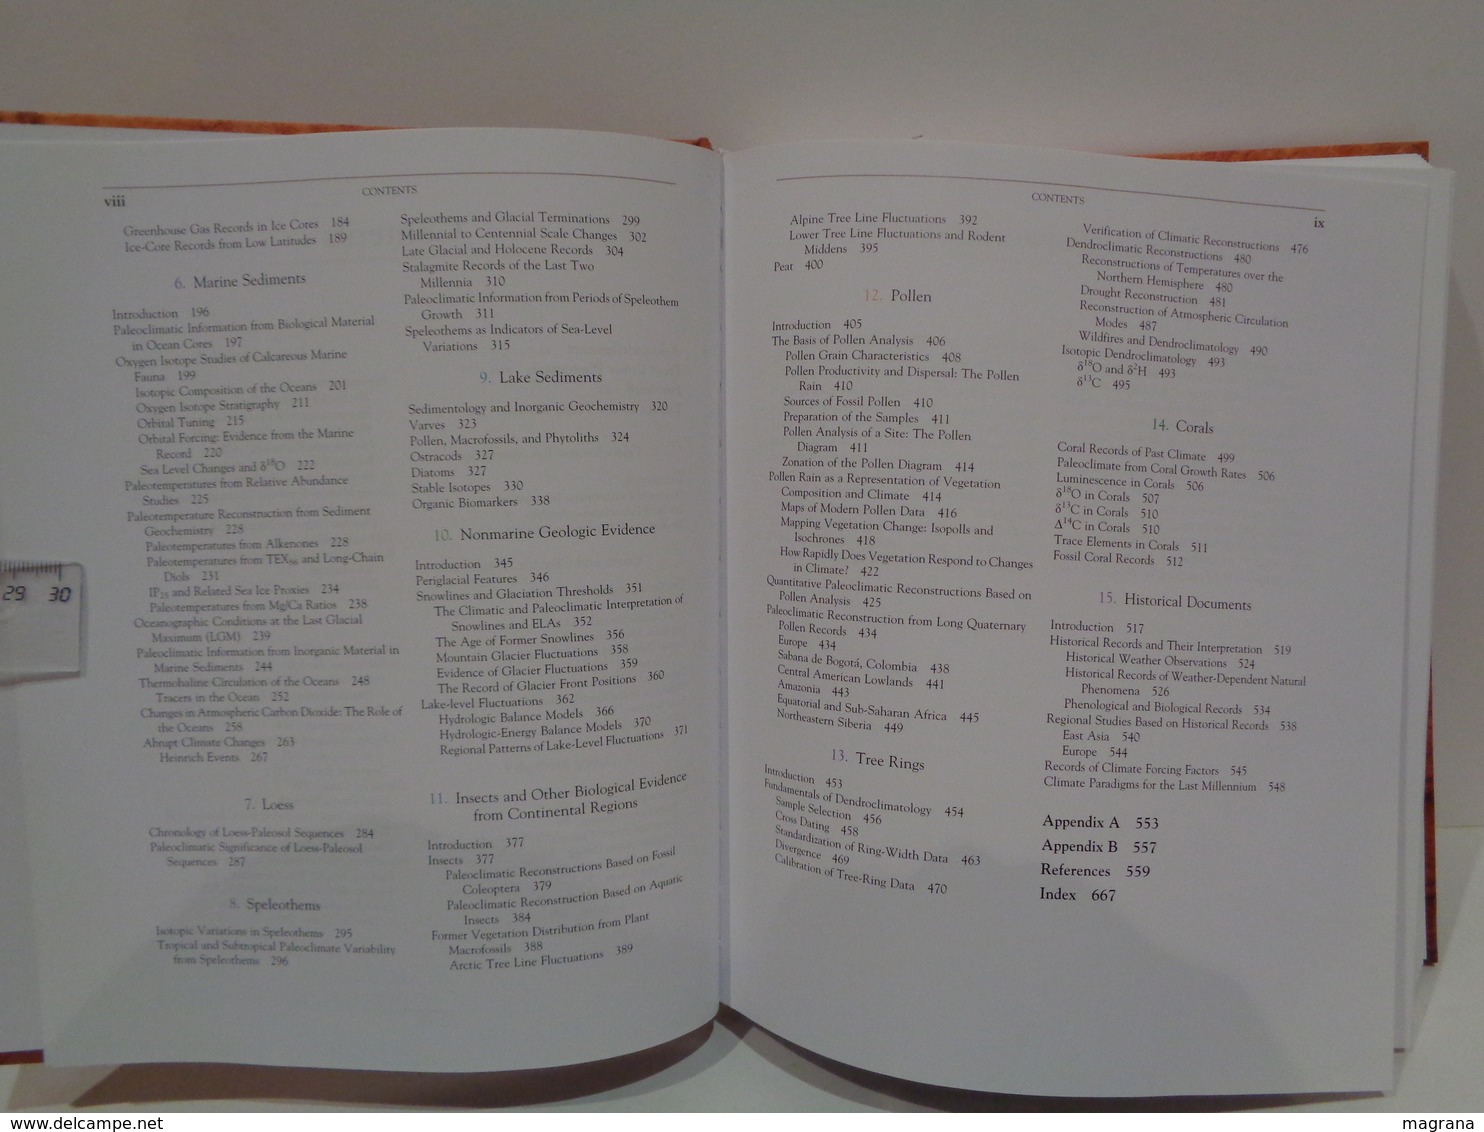 viii
CONTENTS
Greenhouse Gas Records in Ice Cores 184
Ice-Core Records from Low Latitudes 189
6. Marine Sediments
Introduction 196
Paleoclimatic Information from Biological Material
in Ocean Cores 197
Oxygen Isotope Studies of Calcareous Marine
Fauna 199
Isotopic Composition of the Oceans 201
Oxygen Isotope Stratigraphy 211
Orbital Tuning 215
Orbital Forcing: Evidence from the Marine
Record 220
Sea Level Changes and δ¹⁸O 222
Paleotemperatures from Relative Abundance
Studies 225
Paleotemperature Reconstruction from Sediment
Geochemistry 228
Paleotemperatures from Alkenones 228
Paleotemperatures from TEX₈₆ and Long-Chain
Diols 231
IP₂₅ and Related Sea Ice Proxies 234
Paleotemperatures from Mg/Ca Ratios 238
Oceanographic Conditions at the Last Glacial
Maximum (LGM) 239
Paleoclimatic Information from Inorganic Material in
Marine Sediments 244
Thermohaline Circulation of the Oceans 248
Tracers in the Ocean 252
Changes in Atmospheric Carbon Dioxide: The Role of
the Oceans 258
Abrupt Climate Changes 263
Heinrich Events 267
7. Loess
Chronology of Loess-Paleosol Sequences 284
Paleoclimatic Significance of Loess-Paleosol
Sequences 287
8. Speleothems
Isotopic Variations in Speleothems 295
Tropical and Subtropical Paleoclimate Variability
from Speleothems 296
Speleothems and Glacial Terminations 299
Millennial to Centennial Scale Changes 302
Late Glacial and Holocene Records 304
Stalagmite Records of the Last Two
Millennia 310
Paleoclimatic Information from Periods of Speleothem
Growth 311
Speleothems as Indicators of Sea-Level
Variations 315
9. Lake Sediments
Sedimentology and Inorganic Geochemistry 320
Varves 323
Pollen, Macrofossils, and Phytoliths 324
Ostracods 327
Diatoms 327
Stable Isotopes 330
Organic Biomarkers 338
10. Nonmarine Geologic Evidence
Introduction 345
Periglacial Features 346
Snowlines and Glaciation Thresholds 351
The Climatic and Paleoclimatic Interpretation of
Snowlines and ELAs 352
The Age of Former Snowlines 356
Mountain Glacier Fluctuations 358
Evidence of Glacier Fluctuations 359
The Record of Glacier Front Positions 360
Lake-level Fluctuations 362
Hydrologic Balance Models 366
Hydrologic-Energy Balance Models 370
Regional Patterns of Lake-Level Fluctuations 371
11. Insects and Other Biological Evidence
from Continental Regions
Introduction 377
Insects 377
Paleoclimatic Reconstructions Based on Fossil
Coleoptera 379
Paleoclimatic Reconstruction Based on Aquatic
Insects 384
Former Vegetation Distribution from Plant
Macrofossils 388
Arctic Tree Line Fluctuations 389
CONTENTS
ix
Alpine Tree Line Fluctuations 392
Lower Tree Line Fluctuations and Rodent
Middens 395
Peat 400
12. Pollen
Introduction 405
The Basis of Pollen Analysis 406
Pollen Grain Characteristics 408
Pollen Productivity and Dispersal: The Pollen
Rain 410
Sources of Fossil Pollen 410
Preparation of the Samples 411
Pollen Analysis of a Site: The Pollen
Diagram 411
Zonation of the Pollen Diagram 414
Pollen Rain as a Representation of Vegetation
Composition and Climate 414
Maps of Modern Pollen Data 416
Mapping Vegetation Change: Isopolls and
Isochrones 418
How Rapidly Does Vegetation Respond to Changes
in Climate? 422
Quantitative Paleoclimatic Reconstructions Based on
Pollen Analysis 425
Paleoclimatic Reconstruction from Long Quaternary
Pollen Records 434
Europe 434
Sabana de Bogotá, Colombia 438
Central American Lowlands 441
Amazonia 443
Equatorial and Sub-Saharan Africa 445
Northeastern Siberia 449
13. Tree Rings
Introduction 453
Fundamentals of Dendroclimatology 454
Sample Selection 456
Cross Dating 458
Standardization of Ring-Width Data 463
Divergence 469
Calibration of Tree-Ring Data 470
Verification of Climatic Reconstructions 476
Dendroclimatic Reconstructions 480
Reconstructions of Temperatures over the
Northern Hemisphere 480
Drought Reconstruction 481
Reconstruction of Atmospheric Circulation
Modes 487
Wildfires and Dendroclimatology 490
Isotopic Dendroclimatology 493
δ¹⁸O and δ²H 493
δ¹³C 495
14. Corals
Coral Records of Past Climate 499
Paleoclimate from Coral Growth Rates 506
Luminescence in Corals 506
δ¹⁸O in Corals 507
δ¹³C in Corals 510
Δ¹⁴C in Corals 510
Trace Elements in Corals 511
Fossil Coral Records 512
15. Historical Documents
Introduction 517
Historical Records and Their Interpretation 519
Historical Weather Observations 524
Historical Records of Weather-Dependent Natural
Phenomena 526
Phenological and Biological Records 534
Regional Studies Based on Historical Records 538
East Asia 540
Europe 544
Records of Climate Forcing Factors 545
Climate Paradigms for the Last Millennium 548
Appendix A 553
Appendix B 557
References 559
Index 667
29 30
www.delcampe.net
magrana